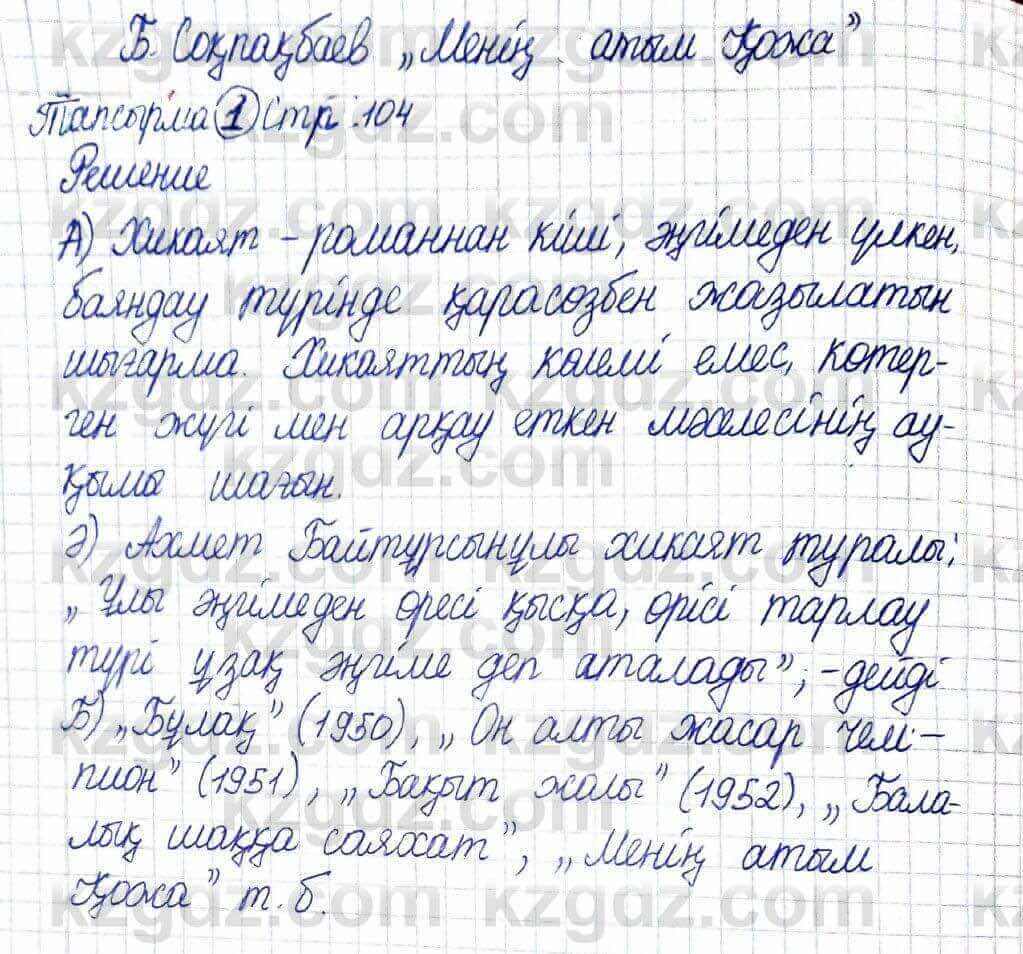 Б. Соқпақбаев „Менің атым Қожа”
Тапсырма 1 Стр. 104
Решение
А) Хикаят – романнан кіші, әңгімеден үлкен,
баяндау түрінде қарасөзбен жазылатын
шығарма. Хикаяттың көлемі емес, көтер-
ген жүгі мен арқау еткен мәселесінің ау-
қымы шағын.
Ә) Ахмет Байтұрсынұлы хикаят туралы:
„Ұлы әңгімеден өресі қысқа, өрісі тарлау
түрі ұзақ әңгіме деп аталады”, – дейді
Б) „Бұлақ” (1950), „Он алты жасар чем-
пион” (1951), „Бақыт жолы” (1952), „Бала-
лық шаққа саяхат”, „Менің атым
Қожа” т.б.
kzgdz.com